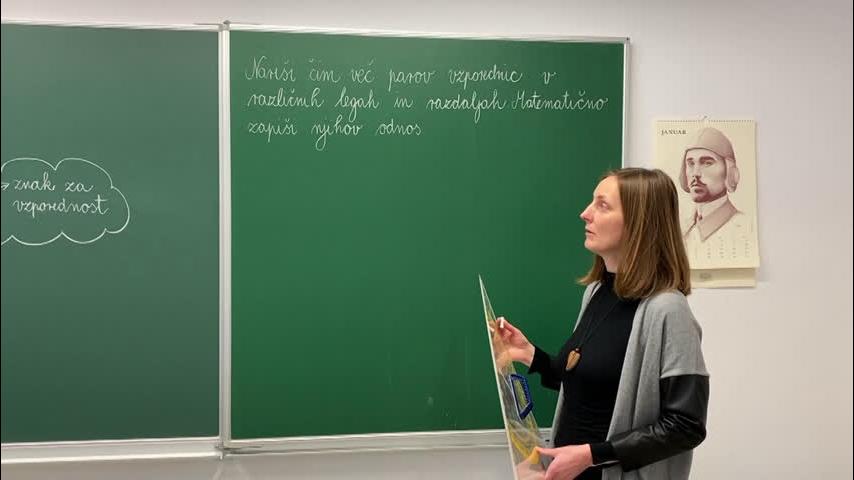 → znak za
vzporednost
Nariši čim več parov vzporednic v
različnih legah in razdaljah Matematično
zapiši njihov odnos
JANUAR